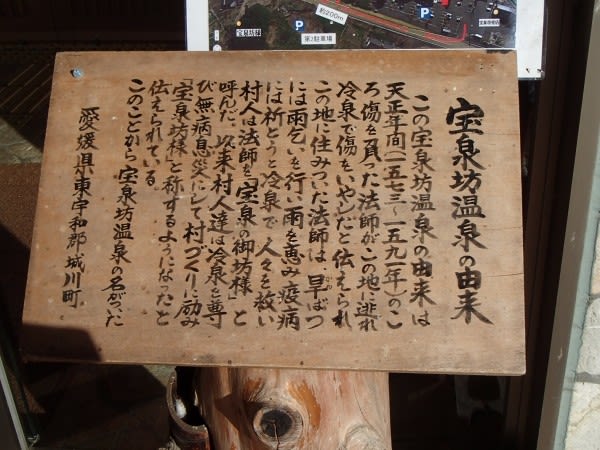 宝泉坊温泉の由来
この宝泉坊温泉の由来は
天正年間(一五七三〜一五九一年)のこ
ろ傷を負った法師がこの地に逃れ
冷泉で傷をいやしたと伝えられ
この地に住みついた法師は、早ばつ
には雨乞いを行い雨を恵み疫病
には祈とうと冷泉で人々を救い
村人は法師を「宝泉の御坊様」と
呼んだ。以来村人達は冷泉を専
び無病息災にして村づくりに励み
「宝泉坊様」と称するようになったと
伝えられている
このことから宝泉坊温泉の名がついた
愛媛県東宇和郡城川町
約200m
P
P
宝泉坊
第2駐車場